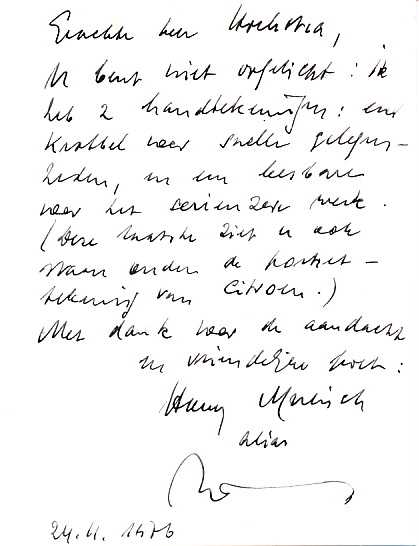 Geachte heer Hoekstra,
U bent niet opgelicht: ik
heb 2 handtekeningen: een
krabbel voor snelle gelegen-
heden, en een leesbare
voor het serieuzere werk.
(Deze laatste ziet u ook
staan onder de portret-
tekening van Citroen.)
Met dank voor de aandacht
en vriendelijke groet:
Harry Mulisch
alias
24.4.1976